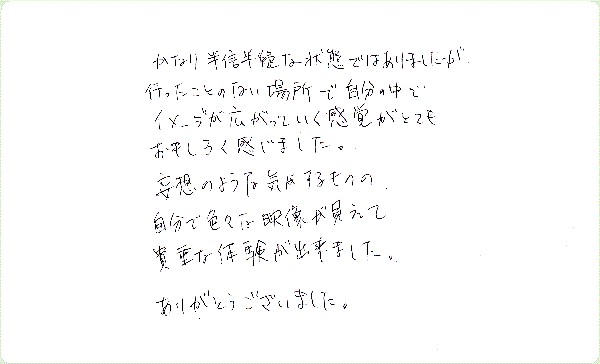 かなり半信半疑な状態ではありましたが、
行ったことのない場所で自分の中で
イメージが広がっていく感覚がとても
おもしろく感じました。
妄想のような気がするものの、
自分で色々な映像が見えて
貴重な体験が出来ました。
ありがとうございました。